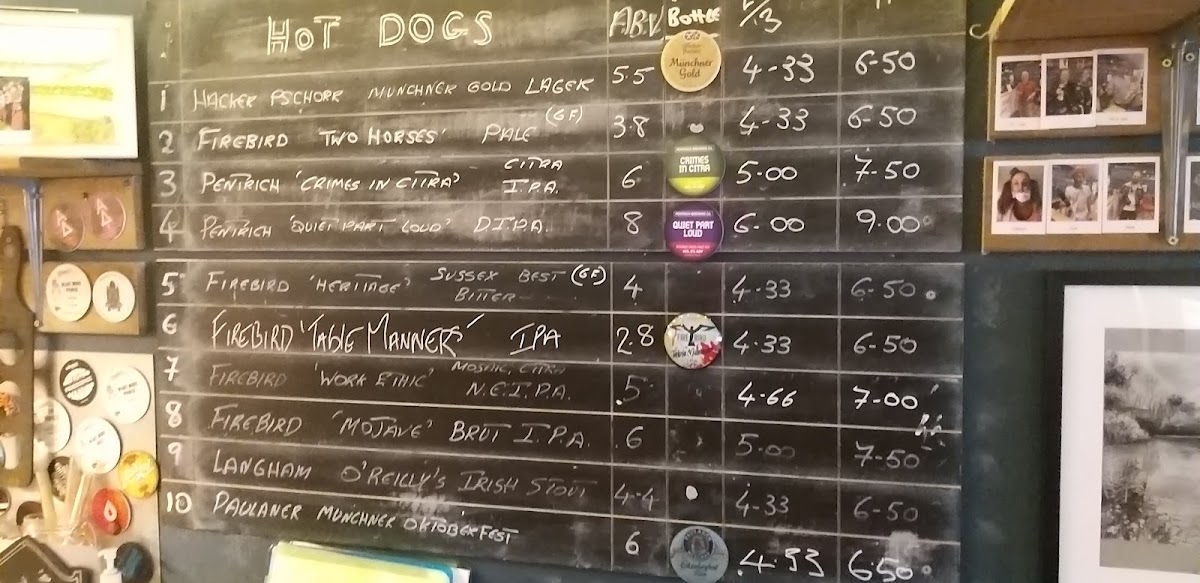 HOT DOGS A.B.V. Bottle 2/3
1 HACKER PSCHORR MUNCHNER GOLD LAGER 5.5 Münchner Gold 4-33 6-50
(GF)
2 FIREBIRD TWO HORSES' PALE 3.8 4-33 6-50
CITRA
3 PENTRICH 'CRIMES IN CITRA' I.P.A. 6 CRIMES IN CITRA 5-00 7-50
4 PENTRICH 'QUIET PART LOUD' D.I.P.A. 8 QUIET PART LOUD 6-00 9.00
5 FIREBIRD 'HERITAGE' SUSSEX BEST (GF) 4 4-33 6-50
BITTER
6 FIREBIRD 'TABLE MANNERS' IPA 2.8 4.33 6-50
MOSAIC, CITRA
7 FIREBIRD 'WORK ETHIC' N.E.I.P.A. 5 4-66 7-00
8 FIREBIRD 'MOJAVE' BRUT I.P.A. 6 5-00 7-50
9 LANGHAM O'REILLY'S IRISH STOUT 4-4 4-33 6-50
10 PAULANER MUNCHNER OKTOBERFEST 6 4-33 6-50